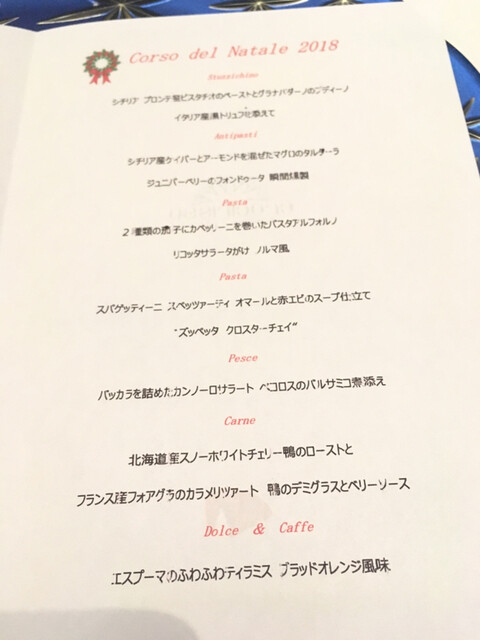 Corso del Natale 2018
Stuzzichino
シチリア ブロンテ産ピスタチオのペーストとグラナパダーノのブディーノ
イタリア産黒トリュフを添えて
Antipasti
シチリア産ケイパーとアーモンドを混ぜたマグロのタルターラ
ジュニパーベリーのフォンドゥータ 瞬間燻製
Pasta
２種類の茄子にカペッリーニを巻いたパスタアルフォルノ
リコッタサラータがけ ノルマ風
Pasta
スパゲッティーニ スペッツァーティ オマールと赤エビのスープ仕立て
"ズッペッタ クロスターチェイ"
Pesce
バッカラを詰めたカンノーロサラート ペコロスのバルサミコ煮添え
Carne
北海道産スノーホワイトチェリー鴨のローストと
フランス産フォアグラのカラメリッツァート 鴨のデミグラスとベリーソース
Dolce & Caffe
エスプーマのふわふわティラミス ブラッドオレンジ風味